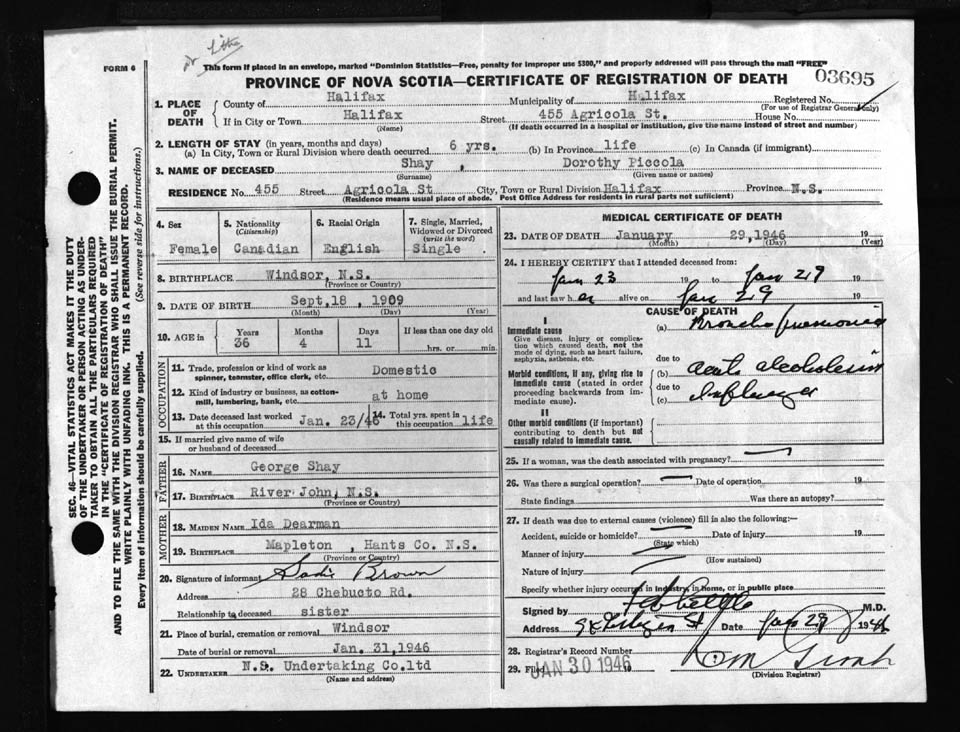 FORM 6
This form if placed in an envelope, marked "Dominion Statistics—Free, penalty for improper use $300," and properly addressed will pass through the mail "FREE"
PROVINCE OF NOVA SCOTIA—CERTIFICATE OF REGISTRATION OF DEATH
03695
1. PLACE OF DEATH County of Halifax Municipality of Halifax Registered No.
(For use of Registrar General only)
If in City or Town Halifax Street 455 Agricola St. House No.
(Name) (If death occurred in a hospital or institution, give the name instead of street and number)
2. LENGTH OF STAY (in years, months and days)
(a) In City, Town or Rural Division where death occurred 6 yrs. (b) In Province life (c) In Canada (if immigrant)
3. NAME OF DECEASED Shay , Dorothy Piccola
(Surname) (Given name or names)
RESIDENCE No. 455 Street Agricola St City, Town or Rural Division Halifax Province N.S.
(Residence means usual place of abode. Post Office Address for residents in rural parts not sufficient)
SEC. 46—VITAL STATISTICS ACT MAKES IT THE DUTY
OF THE UNDERTAKER OR PERSON ACTING AS UNDER-
TAKER TO OBTAIN ALL THE PARTICULARS REQUIRED
IN THE "CERTIFICATE OF REGISTRATION OF DEATH"
AND TO FILE THE SAME WITH THE DIVISION REGISTRAR WHO SHALL ISSUE THE BURIAL PERMIT.
WRITE PLAINLY WITH UNFADING INK. THIS IS A PERMANENT RECORD.
Every item of information should be carefully supplied. (See reverse side for instructions.)
4. Sex
Female
5. Nationality
(Citizenship)
Canadian
6. Racial Origin
English
7. Single, Married,
Widowed or Divorced
(write the word)
Single
8. BIRTHPLACE Windsor, N.S.
(Province or Country)
9. DATE OF BIRTH Sept.18 , 1909
(Month) (Day) (Year)
10. AGE in Years Months Days If less than one day old
36 4 11 hrs. or min.
OCCUPATION
11. Trade, profession or kind of work as
spinner, teamster, office clerk, etc. Domestic
12. Kind of industry or business, as cotton-
mill, lumbering, bank, etc. at home
13. Date deceased last worked
at this occupation Jan. 23/46
14. Total yrs. spent in
this occupation life
15. If married give name of wife
or husband of deceased
FATHER
16. NAME George Shay
17. BIRTHPLACE River John, N.S.
(Province or Country)
MOTHER
18. MAIDEN NAME Ida Dearman
19. BIRTHPLACE Mapleton , Hants Co. N.S.
(Province or Country)
20. Signature of informant Sadie Brown
Address 28 Chebucto Rd.
Relationship to deceased sister
21. Place of burial, cremation or removal Windsor
Date of burial or removal Jan. 31,1946
22. UNDERTAKER N.S. Undertaking Co.ltd
(Name and address)
MEDICAL CERTIFICATE OF DEATH
23. DATE OF DEATH January 29,1946 19
(Month) (Day) (Year)
24. I HEREBY CERTIFY that I attended deceased from:
Jan 23 19 to Jan 29 19
and last saw her alive on Jan 29 19
CAUSE OF DEATH
I
Immediate cause
Give disease, injury or complica-
tion which caused death, not the
mode of dying, such as heart failure,
asphyxia, asthenia, etc.
(a) Broncho pneumonia
due to
Morbid conditions, if any, giving rise to
immediate cause (stated in order
proceeding backwards from im-
mediate cause).
(b) acute alcoholism
due to
(c) Influenza
II
Other morbid conditions (if important)
contributing to death but not
causally related to immediate cause.
25. If a woman, was the death associated with pregnancy?
26. Was there a surgical operation? Date of operation 19
State findings Was there an autopsy?
27. If death was due to external causes (violence) fill in also the following:—
Accident, suicide or homicide? Date of injury 19
(State which)
Manner of injury
(How sustained)
Nature of injury
Specify whether injury occurred in industry, in home, or in public place
Signed by M.D.
Address Date Jan 29 1946
28. Registrar's Record Number
29. Filed JAN 30 1946
(Division Registrar)